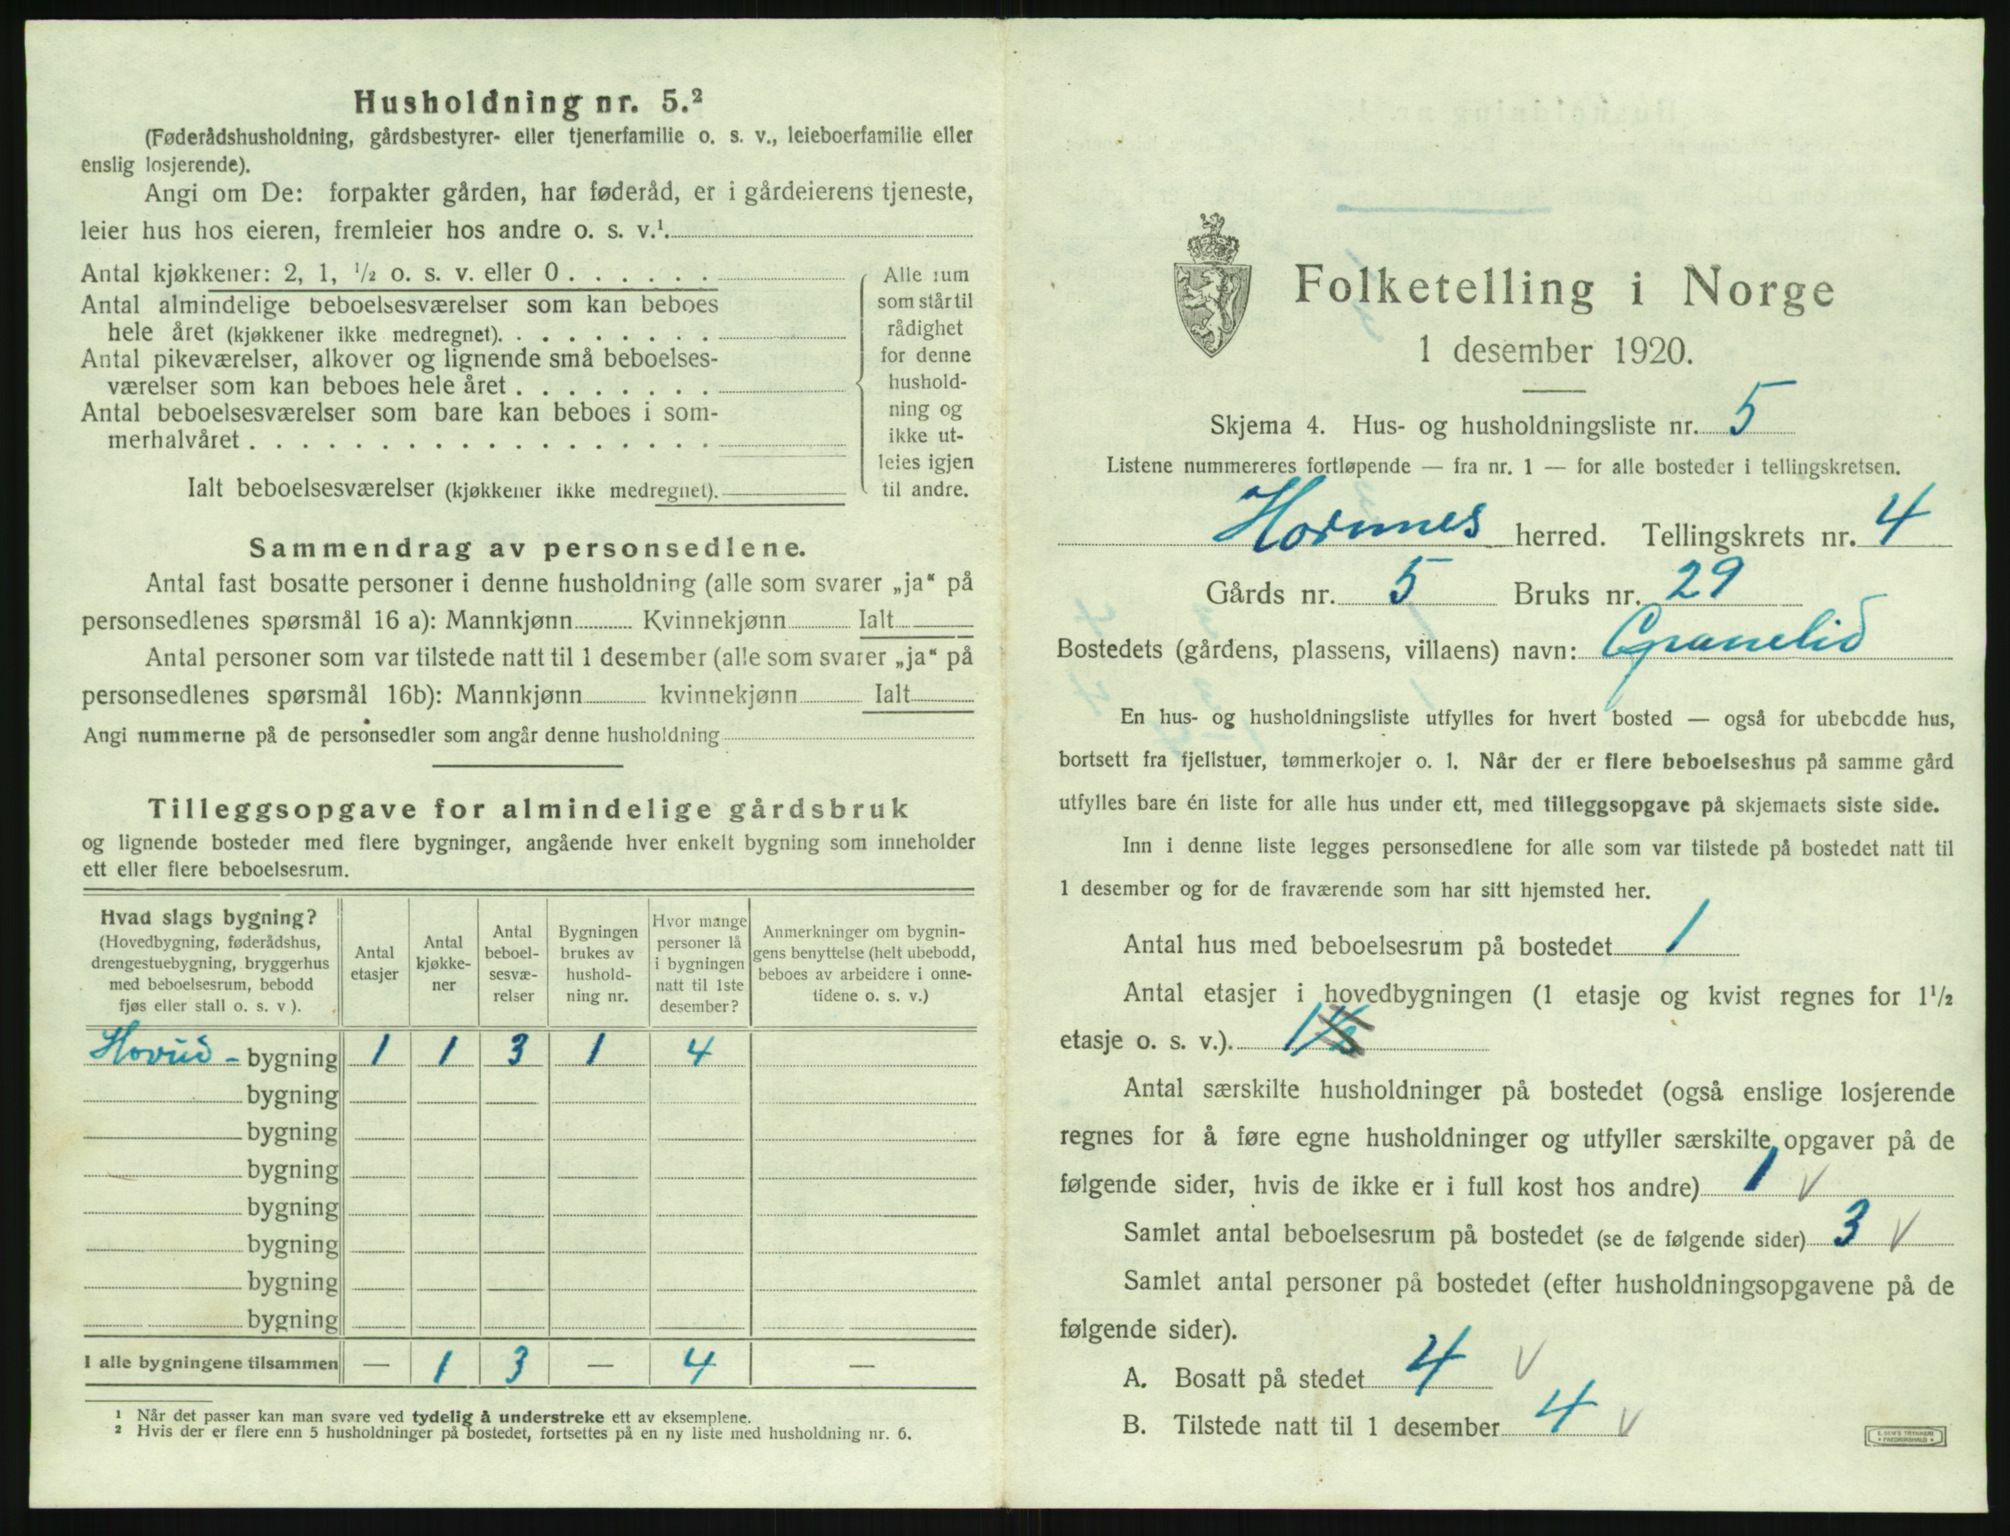 Husholdning nr. 5.²
(Føderådshusholdning, gårdsbestyrer- eller tjenerfamilie o. s. v., leieboerfamilie eller
enslig losjerende).
Angi om De: forpakter gården, har føderåd, er i gårdeierens tjeneste,
leier hus hos eieren, fremleier hos andre o. s. v.¹.
Antal kjøkkener: 2, 1, ½ o. s. v. eller 0 . . . . . .
Antal almindelige beboelsesværelser som kan beboes
hele året (kjøkkener ikke medregnet). . . . . . . . .
Antal pikeværelser, alkover og lignende små beboelses-
værelser som kan beboes hele året . . . . . . . .
Antal beboelsesværelser som bare kan beboes i som-
merhalvåret . . . . . . . . . . . . . . . . . .
Ialt beboelsesværelser (kjøkkener ikke medregnet).
Alle rum
som står til
rådighet
for denne
hushold-
ning og
ikke ut-
leies igjen
til andre.
Sammendrag av personsedlene.
Antal fast bosatte personer i denne husholdning (alle som svarer „ja“ på
personsedlenes spørsmål 16 a): Mannkjønn Kvinnekjønn Ialt
Antal personer som var tilstede natt til 1 desember (alle som svarer „ja“ på
personsedlenes spørsmål 16b): Mannkjønn kvinnekjønn Ialt
Angi nummerne på de personsedler som angår denne husholdning
Tilleggsopgave for almindelige gårdsbruk
og lignende bosteder med flere bygninger, angående hver enkelt bygning som inneholder
ett eller flere beboelsesrum.
Hvad slags bygning?
(Hovedbygning, føderådshus,
drengestuebygning, bryggerhus
med beboelsesrum, bebodd
fjøs eller stall o. s. v ).
Antal
etasjer
Antal
kjøkke-
ner
Antal
beboel-
sesvæ-
relser
Bygningen
brukes av
hushold-
ning nr.
Hvor mange
personer lå
i bygningen
natt til 1ste
desember?
Anmerkninger om bygnin-
gens benyttelse (helt ubebodd,
beboes av arbeidere i onne-
tidene o. s. v.)
Hovud - bygning 1 1 3 1 4
bygning
bygning
bygning
bygning
bygning
bygning
bygning
I alle bygningene tilsammen — 1 3 — 4 —
¹ Når det passer kan man svare ved tydelig å understreke ett av eksemplene.
² Hvis der er flere enn 5 husholdninger på bostedet, fortsettes på en ny liste med husholdning nr. 6.
Folketelling i Norge
1 desember 1920.
Skjema 4. Hus- og husholdningsliste nr. 5
Listene nummereres fortløpende — fra nr. 1 — for alle bosteder i tellingskretsen.
Hornnes herred. Tellingskrets nr. 4
Gårds nr. 5 Bruks nr. 29
Bostedets (gårdens, plassens, villaens) navn: Granelid
En hus- og husholdningsliste utfylles for hvert bosted — også for ubebodde hus,
bortsett fra fjellstuer, tømmerkojer o. l. Når der er flere beboelseshus på samme gård
utfylles bare én liste for alle hus under ett, med tilleggsopgave på skjemaets siste side.
Inn i denne liste legges personsedlene for alle som var tilstede på bostedet natt til
1 desember og for de fraværende som har sitt hjemsted her.
Antal hus med beboelsesrum på bostedet 1
Antal etasjer i hovedbygningen (1 etasje og kvist regnes for 1½
etasje o. s. v.). 1½
Antal særskilte husholdninger på bostedet (også enslige losjerende
regnes for å føre egne husholdninger og utfyller særskilte opgaver på de
følgende sider, hvis de ikke er i full kost hos andre) 1 √
Samlet antal beboelsesrum på bostedet (se de følgende sider) 3 √
Samlet antal personer på bostedet (efter husholdningsopgavene på de
følgende sider).
A. Bosatt på stedet 4 √
B. Tilstede natt til 1 desember 4 √
E. SEM'S TRYKKERI
FREDRIKSHALD